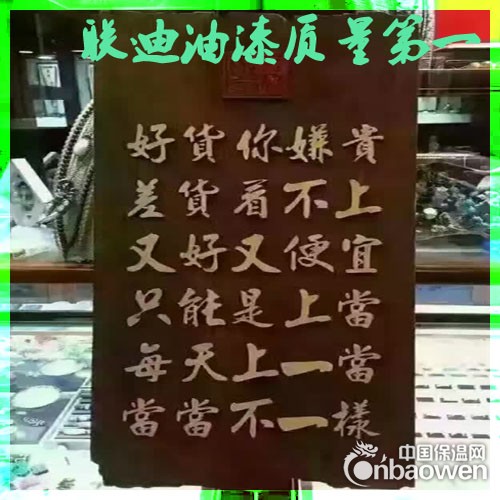 联迪油漆质量第一
好貨你嫌貴
差貨看不上
又好又便宜
只能是上當
每天上一當
當當不一樣
中国保温网
cnbaowen